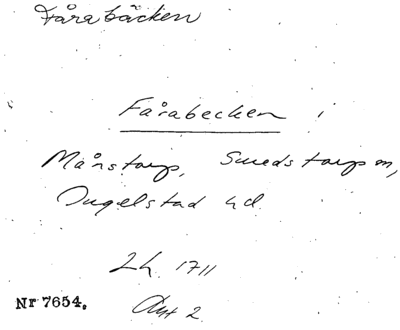 Fårabäcken
Fårabecken i
Månstorp, Smedstorps sn,
Ingelstad hd
Lh. 1711
Akt 2
Nr 7654.